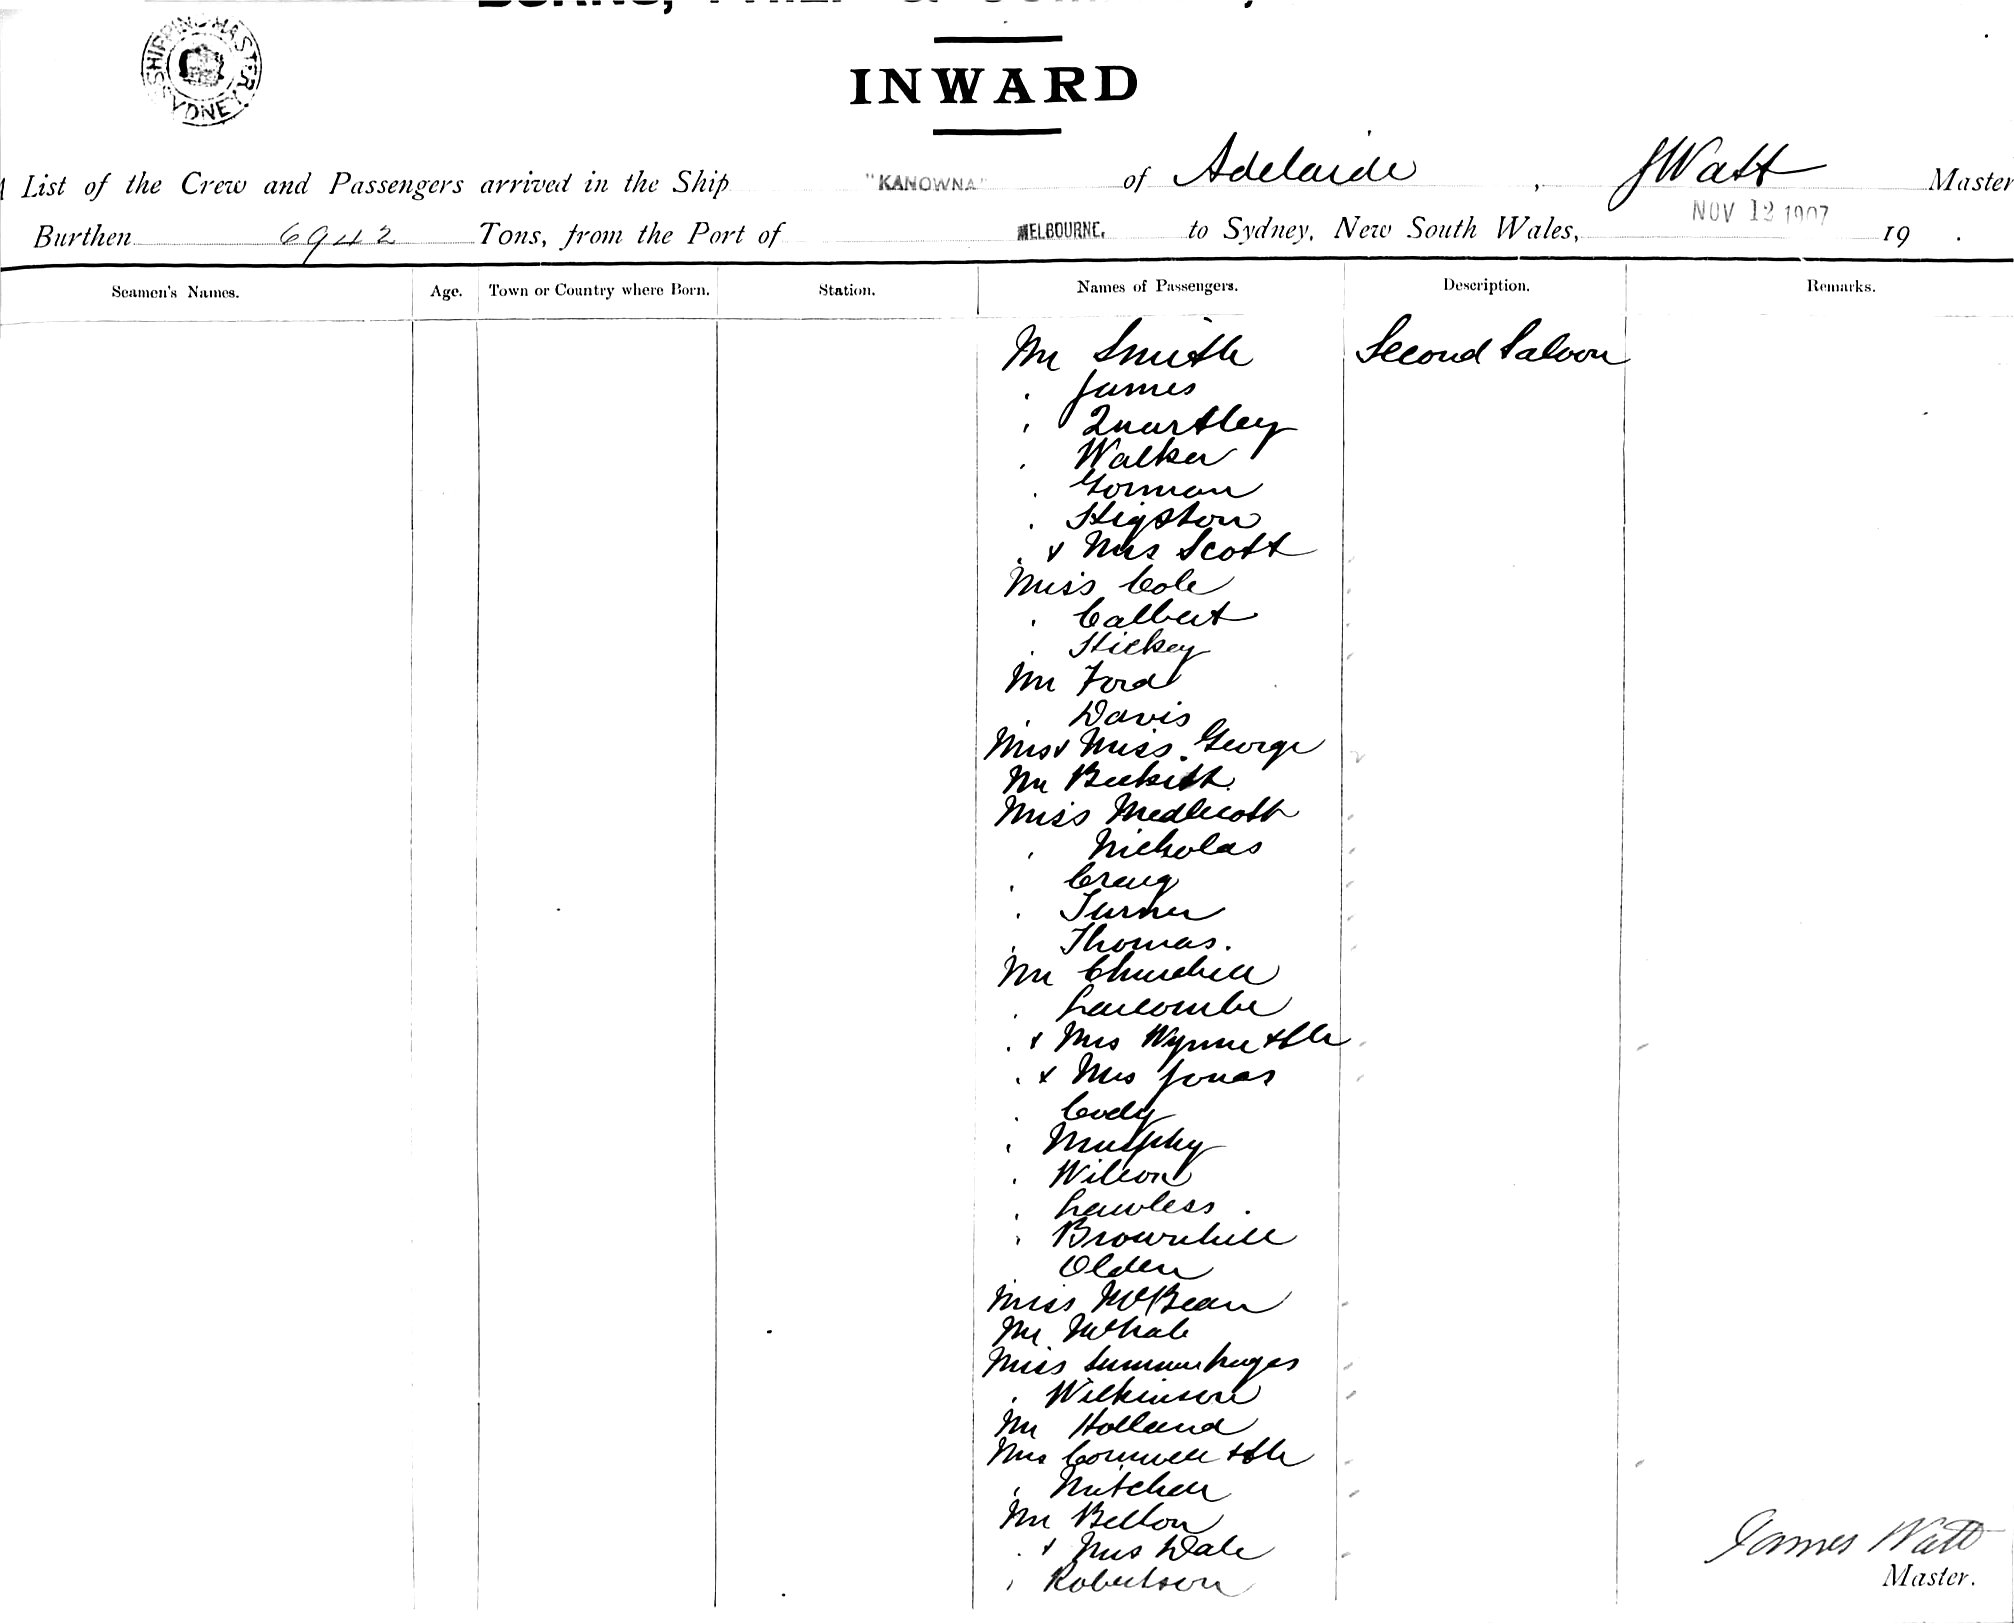 SHIPPING MASTER SYDNEY
INWARD
List of the Crew and Passengers arrived in the Ship "KANOWNA" of Adelaide, J Watt Master
Burthen 6942 Tons, from the Port of MELBOURNE. to Sydney, New South Wales, NOV 12 1907 19 .
Seamen's Names. Age. Town or Country where Born. Station. Names of Passengers. Description. Remarks.
Mr Smith Second Saloon
. James
. Quartley
. Walker
. Gorman
. Higston
. & Mrs Scott
Miss Cole
. Calbert
. Hickey
Mr Ford
. Davis
Mrs & Miss George
Mr Beckett
Miss Medlicott
. Nicholas
. Craig
. Turner
. Thomas.
Mr Churchill
. Larcombe
. & Mrs Wynne & Ch
. & Mrs Jonas
. Cody
. Murphy
. Wilson
. Lawless
. Brownhill
Olden
Miss McBean
Mr McHale
Miss Summerhayes
. Wilkinson
Mr Holland
Mrs Cornwell & Ch
. Mitchell
Mr Bellon
. & Mrs Dale
. Robertson
James Watt
Master.